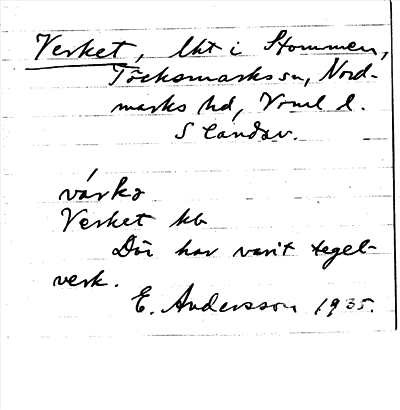 Verket, lht i Stommen,
Töcksmarks sn, Nord-
marks hd, Vrml l.
S Landsv.
värkə
Verket kb
Där har varit tegel-
verk.
E. Andersson 1935.